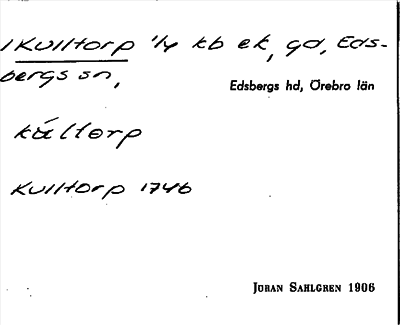 1 Kulltorp 1/4 kb ek, gd, Eds-
bergs sn,
Edsbergs hd, Örebro län
kúltorp
Kulltorp 1746
JÖRAN SAHLGREN 1906